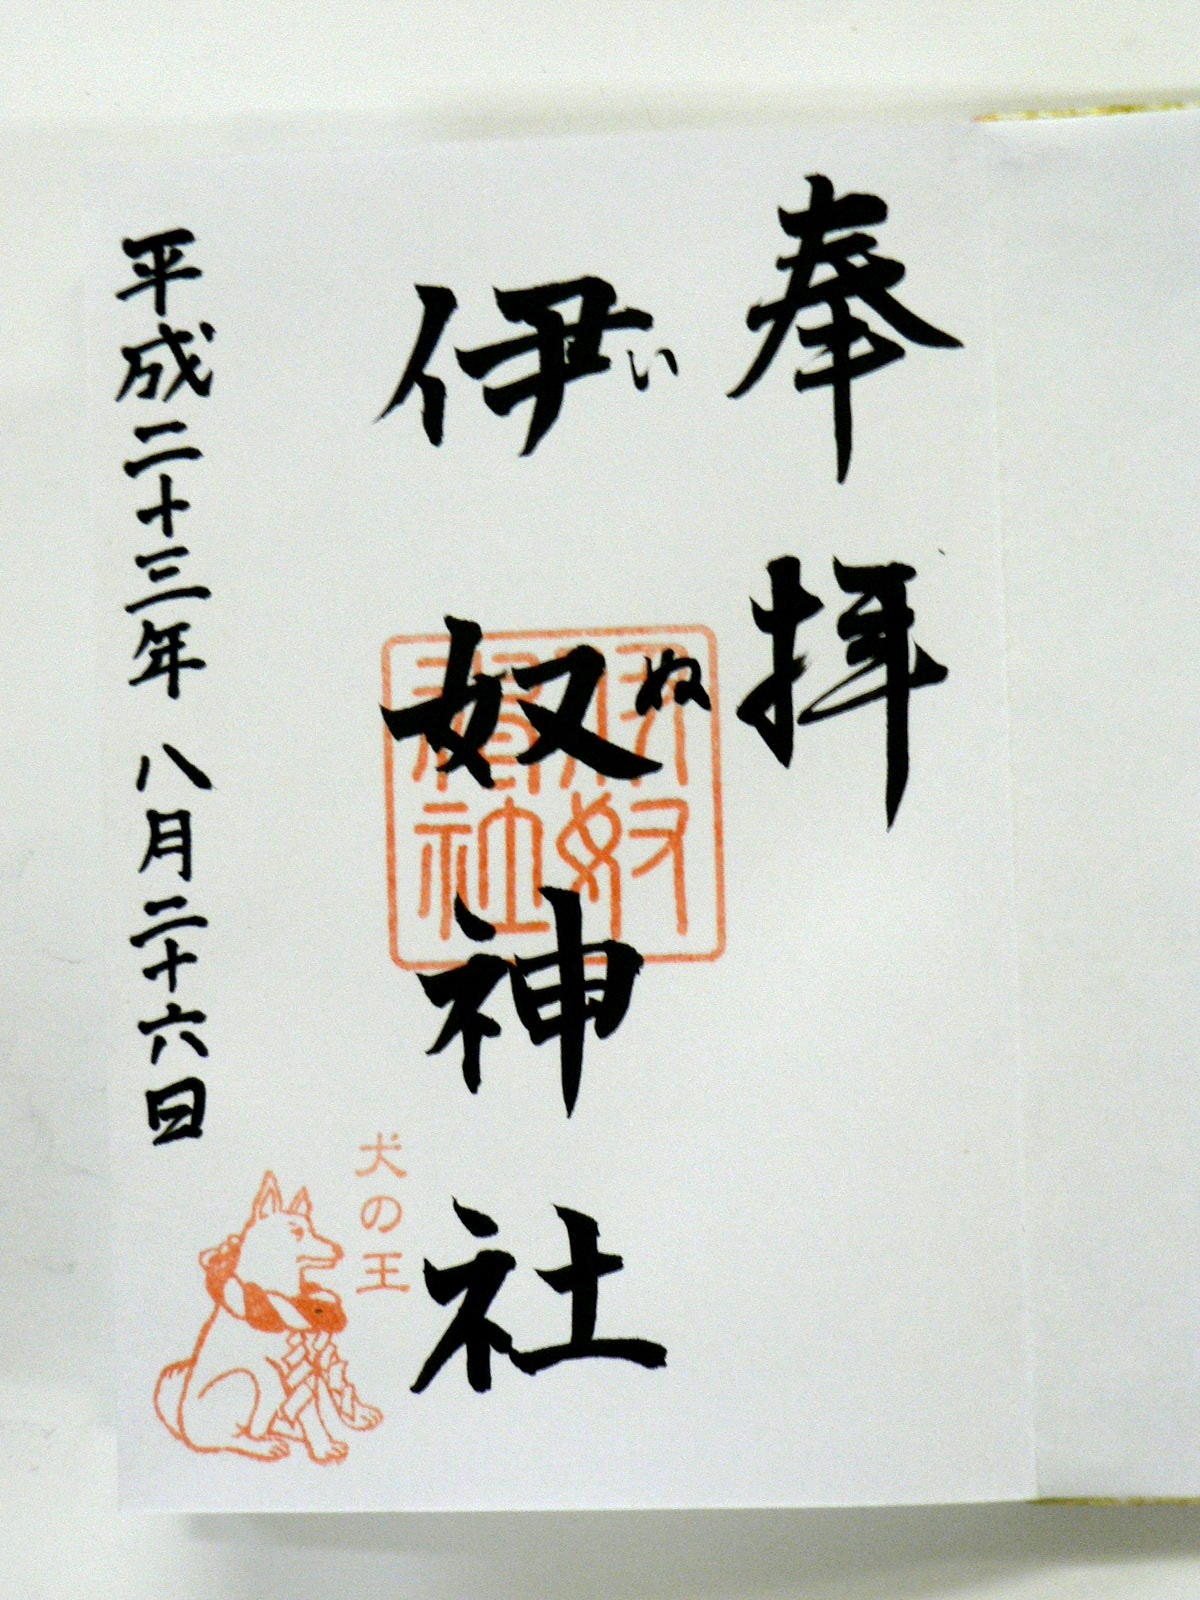 奉拝
伊奴神社
いぬ
伊奴
神社
犬の王
平成二十三年八月二十六日